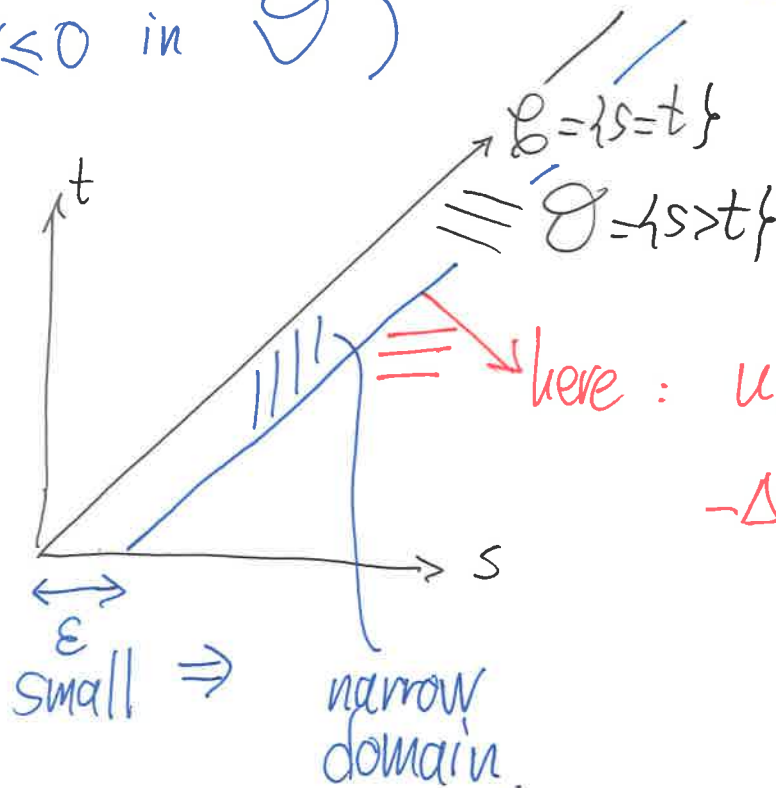 ≤0 in 𝒪 )
t
𝒞={s=t}
𝒪={s>t}
here : u
-Δ
s
ε
small ⇒ narrow
domain.